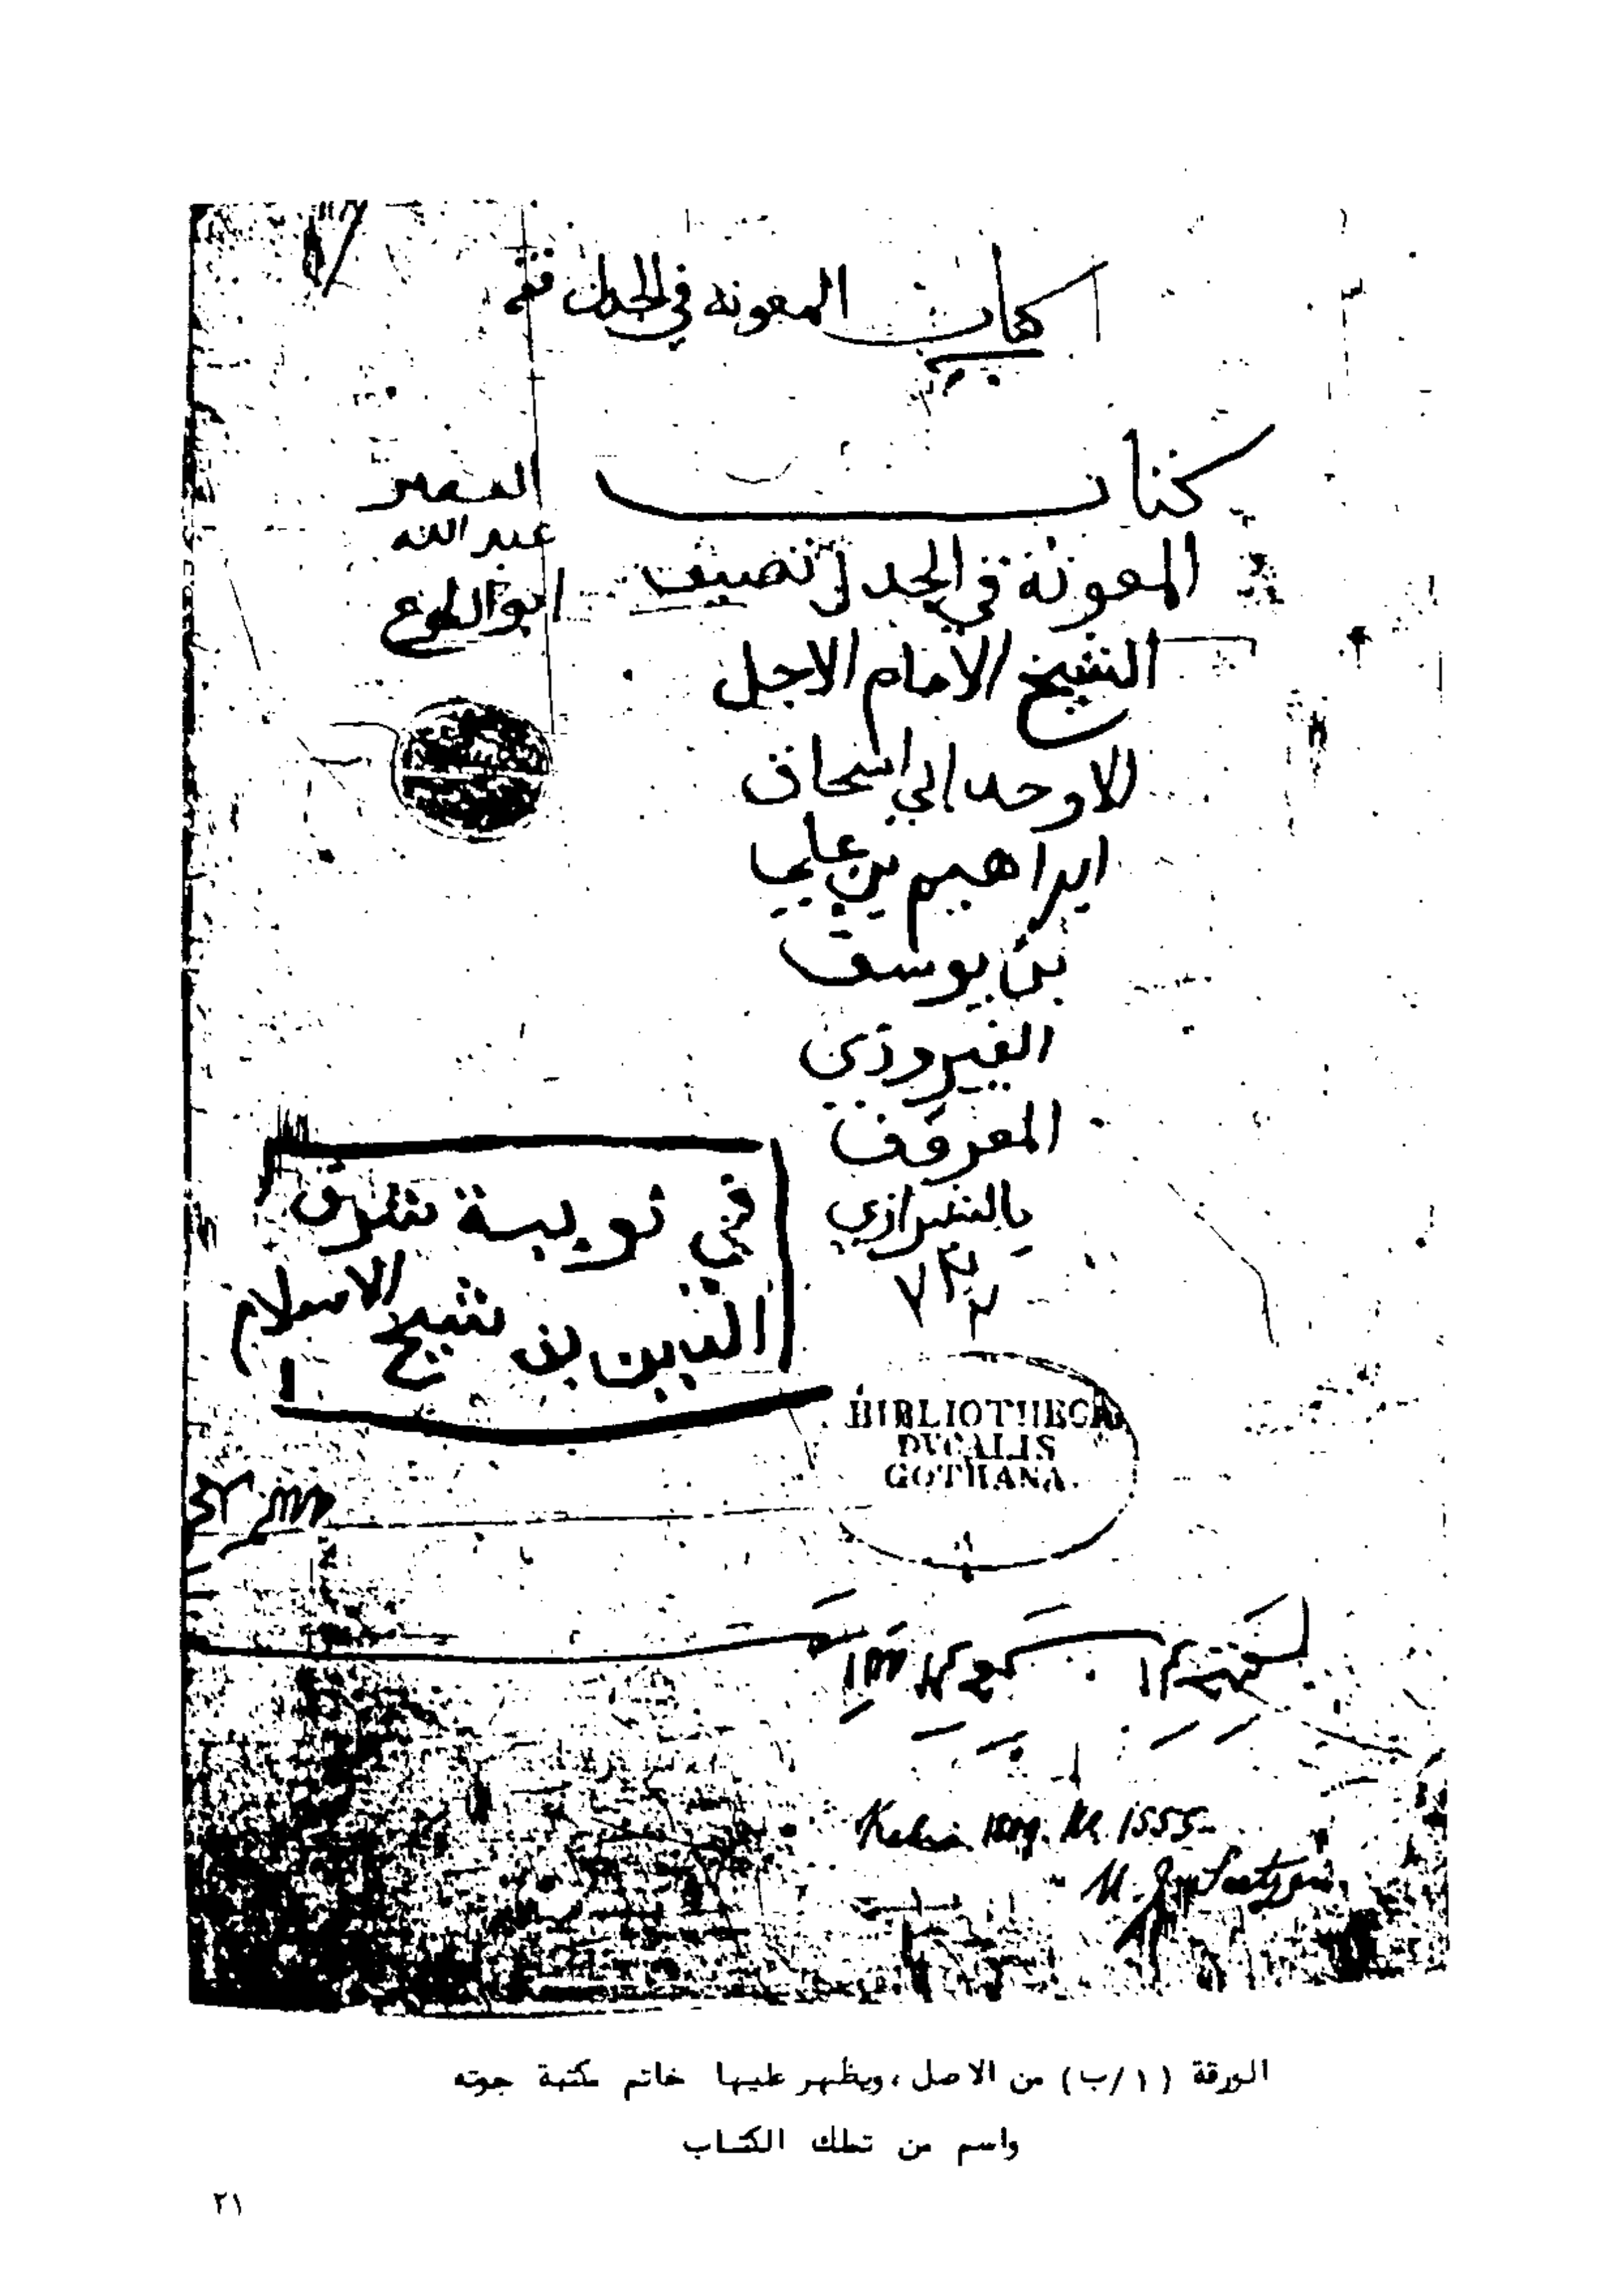 كتاب المعونه في الجدل فقه
كتاب
المعونة في الجدل تصنيف
الشيخ الامام الاجل
الاوحد ابي اسحاق
ابراهيم بن علي
بن يوسف
الفيروزي
المعروف
بالشيرازي
الفقير
عبد الله
ابو
في نوبة شرف
الدين بن شيخ الاسلام
BIBLIOTHECA
DVCALIS
GOTHANA.
1555
الورقة (١/ب) من الاصل، ويظهر عليها خاتم مكتبة جوته
واسم من تملك الكتاب
٢١